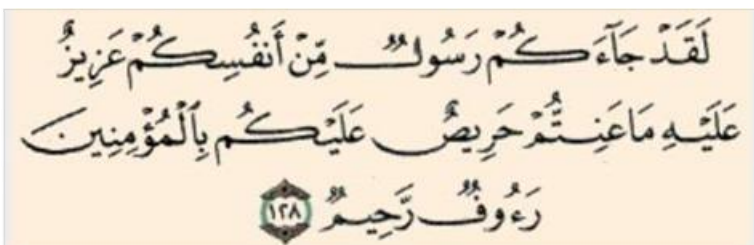 لَقَدْ جَآءَكُمْ رَسُولٌ مِّنْ أَنفُسِكُمْ عَزِيزٌ
عَلَيْهِ مَا عَنِتُّمْ حَرِيصٌ عَلَيْكُم بِٱلْمُؤْمِنِينَ
رَءُوفٌ رَّحِيمٌ ١٢٨